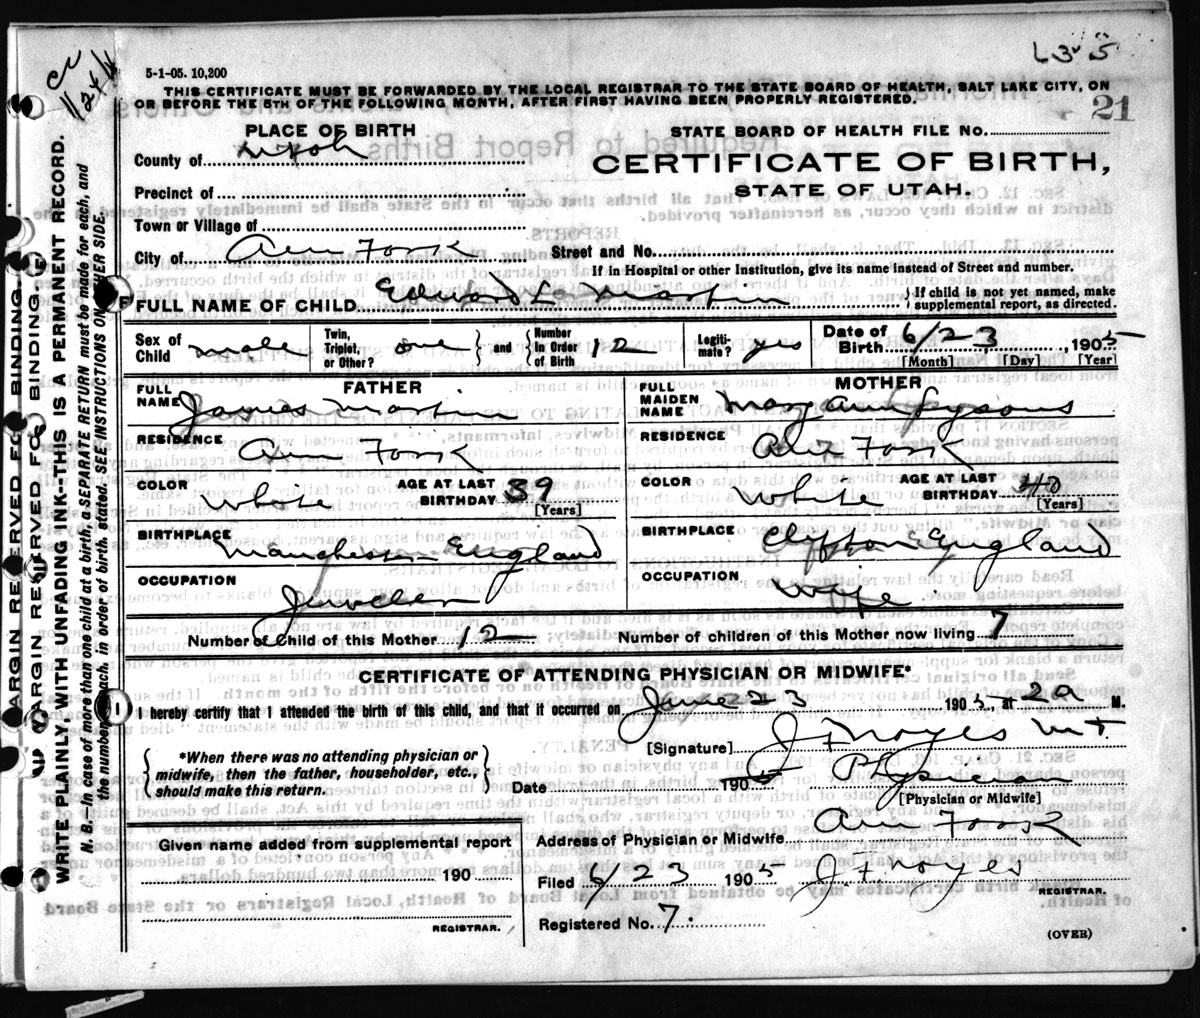 L 3 5
5-1-05. 10,200
THIS CERTIFICATE MUST BE FORWARDED BY THE LOCAL REGISTRAR TO THE STATE BOARD OF HEALTH, SALT LAKE CITY, ON
OR BEFORE THE 5TH OF THE FOLLOWING MONTH, AFTER FIRST HAVING BEEN PROPERLY REGISTERED.
21
PLACE OF BIRTH
STATE BOARD OF HEALTH FILE NO.
County of Utah
CERTIFICATE OF BIRTH,
Precinct of
STATE OF UTAH.
Town or Village of
City of Am Fork Street and No.
If in Hospital or other Institution, give its name instead of Street and number.
FULL NAME OF CHILD Edward L Martin { If child is not yet named, make supplemental report, as directed.
Sex of Child male Twin, Triplet, or Other? one and Number in Order of Birth 12 Legiti-mate? yes Date of Birth 6/23, 1905
[Month] [Day] [Year]
FATHER
FULL NAME James Martin
RESIDENCE Am Fork
COLOR White AGE AT LAST BIRTHDAY 39 [Years]
BIRTHPLACE Manchester England
OCCUPATION Jeweler
MOTHER
FULL MAIDEN NAME Mary Ann Sysons
RESIDENCE Am Fork
COLOR White AGE AT LAST BIRTHDAY 40 [Years]
BIRTHPLACE Clifton England
OCCUPATION Wife
Number of Child of this Mother 12 Number of children of this Mother now living 7
CERTIFICATE OF ATTENDING PHYSICIAN OR MIDWIFE*
I hereby certify that I attended the birth of this child, and that it occurred on June 23 1905, at 2 a M.
*When there was no attending physician or midwife, then the father, householder, etc., should make this return.
[Signature] J F Noyes
Date 190 Physician
[Physician or Midwife]
Given name added from supplemental report
190
REGISTRAR.
Address of Physician or Midwife Am Fork
Filed 6/23 1905 J F Noyes
REGISTRAR.
Registered No. 7.
(OVER)
MARGIN RESERVED FOR BINDING.
WRITE PLAINLY WITH UNFADING INK--THIS IS A PERMANENT RECORD.
N. B.--In case of more than one child at a birth, a SEPARATE RETURN must be made for each, and
the number of each, in order of birth, stated. SEE INSTRUCTIONS ON OTHER SIDE.